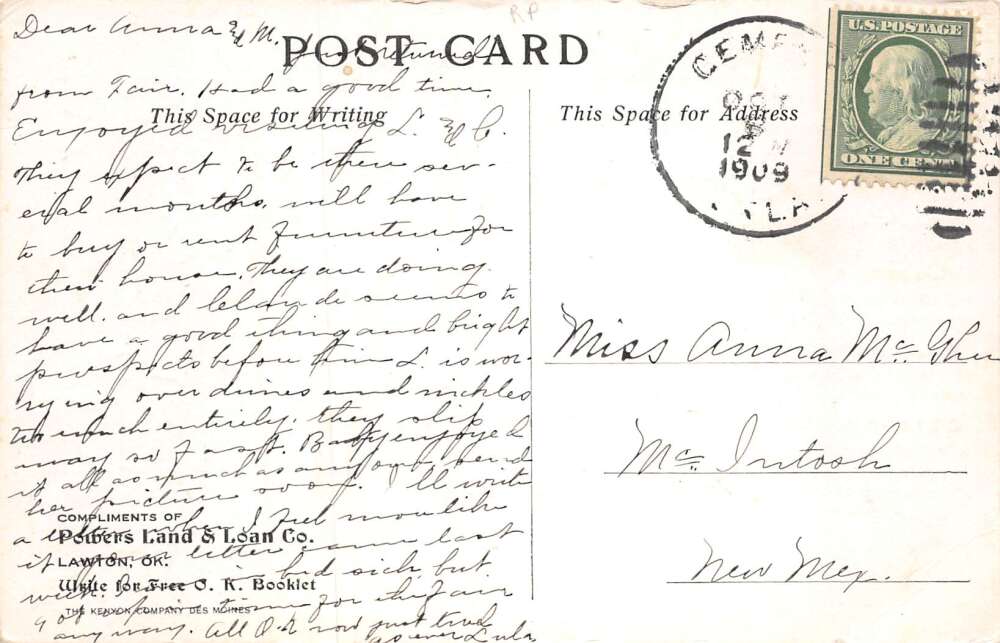 RP
Dear Anna & M. Just returned
POST CARD
from Fair. Had a good time.
This Space for Writing
Enjoyed visiting L. & C.
They expect to be there sev-
eral months, will have
to buy or rent furniture for
their house. They are doing
well. and Claude seems to
have a good thing and bright
prospects before him L. is wor-
rying over dimes and nickles
too much entirely. they slip
away so fast. Baby enjoyed
it all as much as any one. send
her picture soon. I'll write
a letter when I feel more like
it. letter came last
week. in bed sick but
got time for the fair
any way. All O.K now just tired
as ever Lula
COMPLIMENTS OF
Powers Land & Loan Co.
LAWTON, OK.
Write for Free O. K. Booklet
THE KENYON COMPANY DES MOINES
This Space for Address
CEME
OCT
12 M
1909
KLA
U.S. POSTAGE
ONE CENT
Miss Anna McGhe
McIntosh
New Mex.